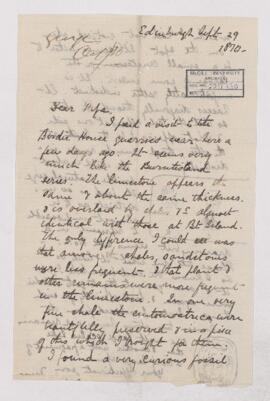 Edinburgh Sept. 29
1870-
McGILL UNIVERSITY
ARCHIVES
Dear Papa,
I paid a visit to the
Bordie House quarries near here a
few days ago. It seems very
much like the Burntisland
series. The limestone appears the
same & about the same thickness.
& is overlaid by shales &c almost
identical with those at Bt Island.
The only difference I could see was
that among shales, sandstones
were less frequent. & that plant &
other remains were more frequent
in the limestone. In one very
fine shale the entomostraca were
beautifully preserved & in a piece
of this which I brought for them.
I found a very curious fossil